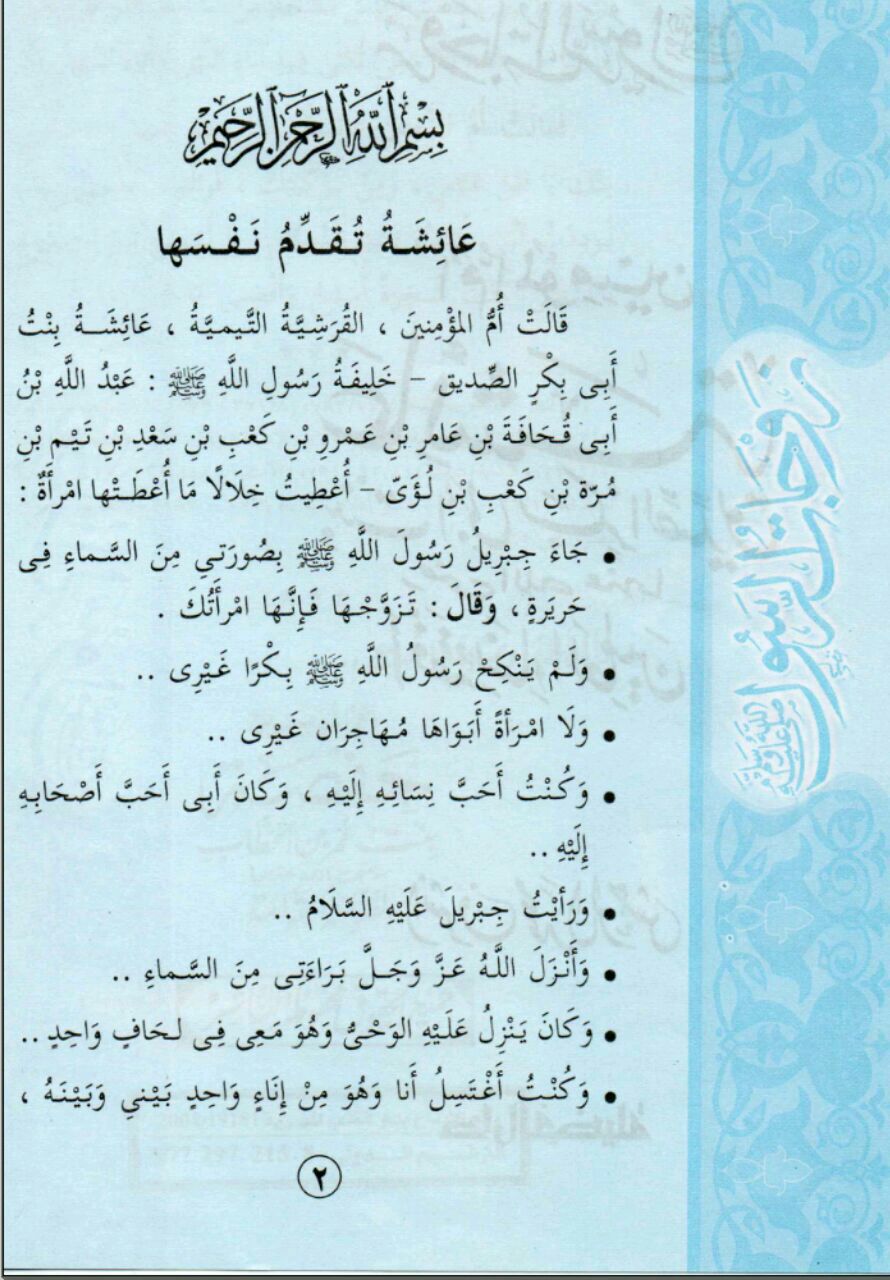 بِسْمِ اللَّهِ الرَّحْمَنِ الرَّحِيمِ
عَائِشَةُ تُقَدِّمُ نَفْسَها
قَالَتْ أُمُّ المؤْمِنِينَ ، القُرَشِيَّةُ التَّيمِيَّةُ ، عَائِشَةُ بِنْتُ
أَبِى بِكْرٍ الصِّديق – خَلِيفَةُ رَسُولِ اللَّهِ ﷺ : عَبْدُ اللَّهِ بْنُ
أَبِى قُحَافَةَ بْنِ عَامرِ بْنِ عَمْروِ بْنِ كَعْبِ بْنِ سَعْدِ بْنِ تَيْم بْنِ
مُرّة بْنِ كَعْبِ بْنِ لُؤَىّ – أُعْطِيتُ خِلَالًا مَا أُعْطَتْها امْرأَةٌ :
• جَاءَ جِبْرِيلُ رَسُولَ اللَّهِ ﷺ بِصُورَتي مِنَ السَّماءِ فِى
حَرِيَرةٍ ، وَقالَ : تَزَوَّجْهَا فَإِنَّهَا امْرأَتُكَ .
• وَلَمْ يَنْكِحْ رَسُولُ اللَّهِ ﷺ بِكْرًا غَيْرِى ..
• وَلَا امْرَأةً أَبَوَاهَا مُهَاجِرَان غَيْرِى ..
• وَكُنْتُ أَحَبَّ نِسَائِهِ إِلَيْهِ ، وَكَانَ أَبِى أَحَبَّ أَصْحَابِهِ
إِلَيْهِ ..
• وَرَأيْتُ جِبْرِيلَ عَلَيْهِ السَّلَامُ ..
• وَأَنْزَلَ اللَّهُ عَزَّ وَجَلَّ بَرَاءَتِى مِنَ السَّماءِ ..
• وَكَانَ يَنْزِلُ عَلَيْهِ الوَحْىُ وَهُوَ مَعِى فِى لحَافٍ وَاحِدٍ ..
• وَكُنْتُ أَغْتَسِلُ أَنا وَهُوَ مِنْ إِنَاءٍ وَاحِدٍ بَيْني وَبَيْنَهُ ،
٢
زَوْجَاتُ الرَّسُولِ صَلَّى اللَّهُ عَلَيْهِ وَسَلَّمَ